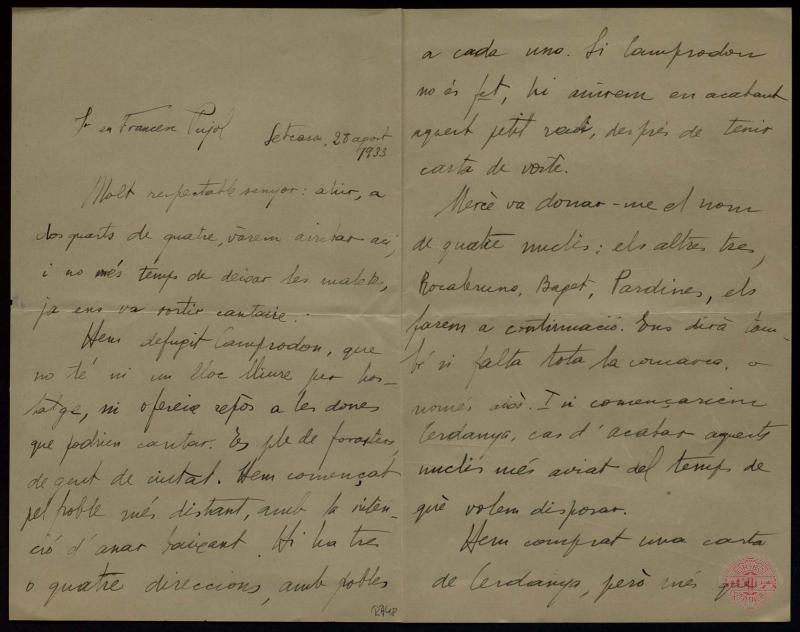 Sr en Francesc Pujol
Setcasa, 28 agost
1933
Molt respectable senyor: ahir, a
dos quarts de quatre, vàrem arribar ací,
i no més temps de deixar les maletes,
ja ens va sortir cantaire.
Hem defugit Camprodon, que
no té ni un lloc lliure per hos-
tatge, ni ofereix repòs a les dones
que podrien cantar. Es ple de forasters,
de gent de ciutat. Hem començat
pel poble més distant, amb la inten-
ció d'anar baixant. Hi ha tres
o quatre direccions, amb pobles
a cada una. Si Camprodon
no és fet, hi anirem en acabant
aquest petit radi, després de tenir
carta de vostè.
Mercè va donar-me el nom
de quatre nuclis; els altres tres,
Rocabruna, Baget, Pardines, els
farem a continuació. Ens dirà tam-
bé si falta tota la comarca, o
només això. I si començaríem
Cerdanya, cas d'acabar aquests
nuclis més aviat del temps de
què volem disposar.
Hem comprat una carta
de Cerdanya, però més
R748